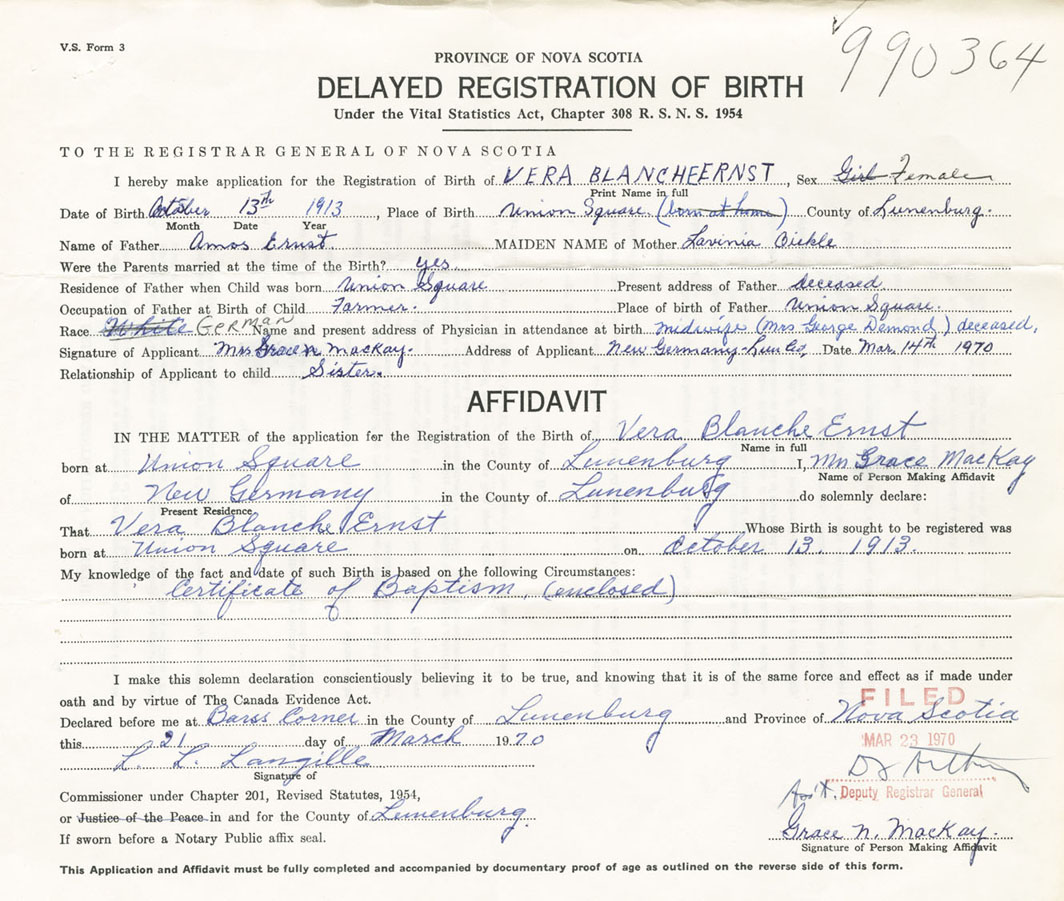 V.S. Form 3
990364
PROVINCE OF NOVA SCOTIA
DELAYED REGISTRATION OF BIRTH
Under the Vital Statistics Act, Chapter 308 R. S. N. S. 1954
TO THE REGISTRAR GENERAL OF NOVA SCOTIA
I hereby make application for the Registration of Birth of VERA BLANCHE ERNST, Sex Girl Female
Print Name in full
Date of Birth October 13th 1913, Place of Birth Union Square (born at home) County of Lunenburg.
Month Date Year
Name of Father Amos Ernst MAIDEN NAME of Mother Lavinia Bickle
Were the Parents married at the time of the Birth? yes
Residence of Father when Child was born Union Square Present address of Father deceased
Occupation of Father at Birth of Child Farmer. Place of birth of Father Union Square.
Race White GERMAN Name and present address of Physician in attendance at birth midwife (Mrs George Demond) deceased,
Signature of Applicant Mrs Grace N MacKay. Address of Applicant New Germany Lun Co, Date Mar. 14th 1970
Relationship of Applicant to child Sister.
AFFIDAVIT
IN THE MATTER of the application for the Registration of the Birth of Vera Blanche Ernst
Name in full
born at Union Square in the County of Lunenburg I, Mrs Grace MacKay
Name of Person Making Affidavit
of New Germany in the County of Lunenburg do solemnly declare:
Present Residence
That Vera Blanche Ernst Whose Birth is sought to be registered was
born at Union Square on October 13. 1913.
My knowledge of the fact and date of such Birth is based on the following Circumstances:
Certificate of Baptism, (enclosed)
I make this solemn declaration conscientiously believing it to be true, and knowing that it is of the same force and effect as if made under
oath and by virtue of The Canada Evidence Act.
FILED
Declared before me at Barss Corner in the County of Lunenburg and Province of Nova Scotia
this 21 day of March 1970
MAR 23 1970
L. L. Langille
Signature of
Ass't. Deputy Registrar General
Commissioner under Chapter 201, Revised Statutes, 1954,
or Justice of the Peace in and for the County of Lunenburg.
Grace N. MacKay.
If sworn before a Notary Public affix seal.
Signature of Person Making Affidavit
This Application and Affidavit must be fully completed and accompanied by documentary proof of age as outlined on the reverse side of this form.